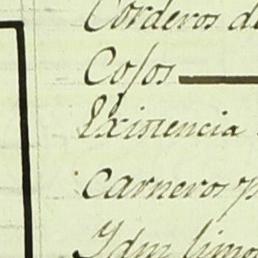 Corderos de
Cojos
Existencia
carneros p
Idm limo